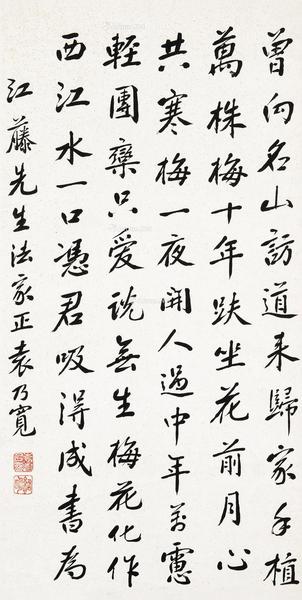 曾向名山訪道来歸家手植
萬株梅十年趺坐花前月心
共寒梅一夜開人過中年万慮
輕團欒只愛説無生梅花化作
西江水一口憑君吸得成書為
江藤先生法家正袁乃寬